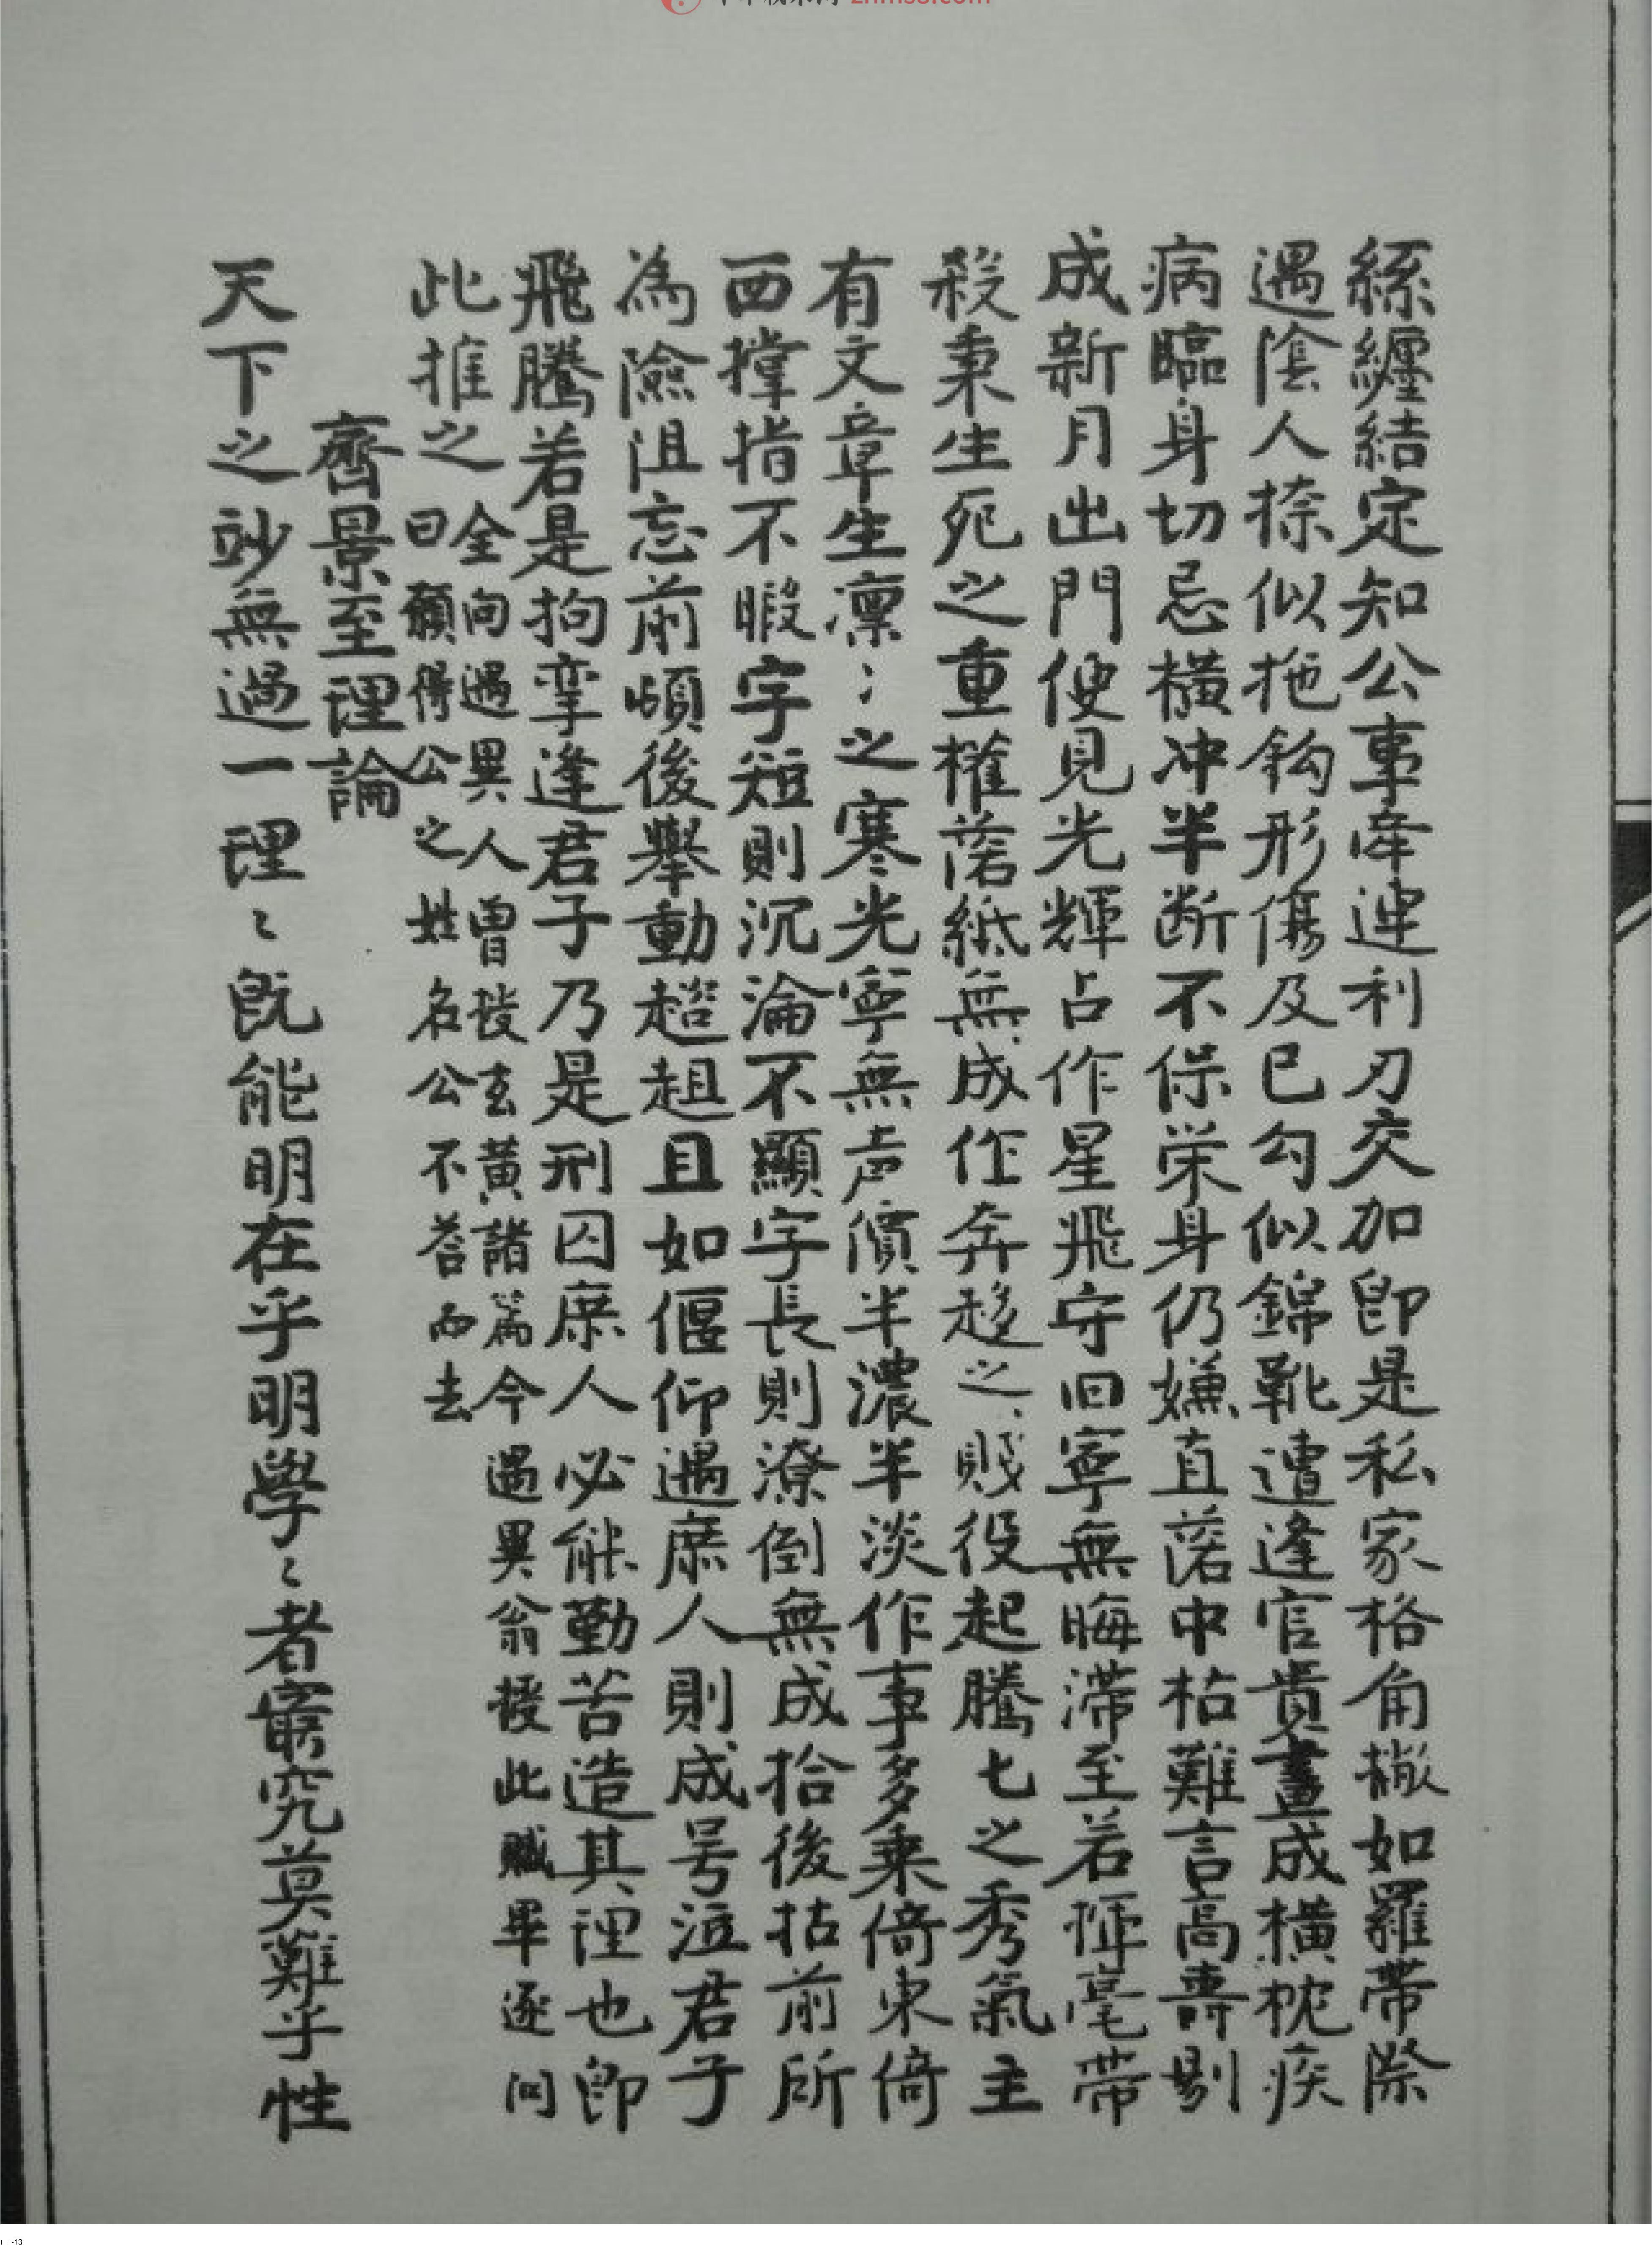 znmss.com
絲纏結定知公事牽連利刃交加即是私家格角撇如羅帶際
遇陰人捺似拖鈎形傷及已勾似錦靴遭逢官貴畫成橫枕疾
病臨身切忌橫冲半断不保栄身仍嫌直落中枯難言高壽剔
成新月出門便見光輝占作星飛守旧寧無晦滯至若揮毫帶
殺秉生死之重權落紙無成作奔趍之賤役起騰七之秀氣主
有文章生凜〻之寒光寧無声價半濃半淡作事多乗倚東倚
西撑指不暇字短則沉淪不顯字長則潦倒無成拾後拈前所
為險阻忘前頓後舉動趑趄且如偃仰遇庶人則成号泣君子
飛騰若是拘挛逢君子乃是刑囚庶人必能勤苦造其理也即
此推之
全向遇異人曾授玄黃諸篇今遇異翁授此賦畢逐问
曰願得公之姓名公不荅而去
齊景至理論
天下之玅無過一理〻既能明在乎明學〻者窮究莫難乎性
11-13